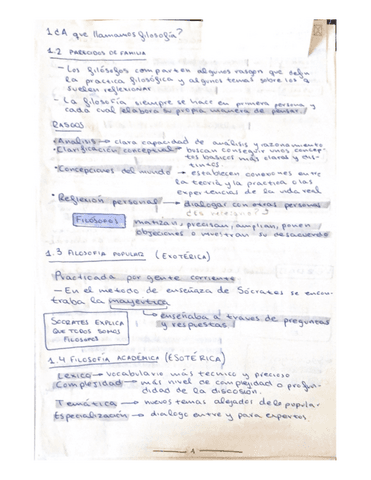 1. ¿A que llamamos filosofía?
1.2 PARECIDOS DE FAMILIA
- Los filósofos comparten algunos rasgos que definen
la practica filosófica y algunos temas sobre los q
suelen reflexionar
- La filosofía siempre se hace en primera persona y
cada cual elabora su propia manera de pensar.
RASGOS
• Analisis → clara capacidad de análisis y razonamiento
• Clarificación conceptual → buscan conseguir unos concep-
tos basicos más claros y dis-
tinos.
• Concepciones del mundo → establecen conexiones entre
la teoría y la practica o las
experiencias de la vida real
• Reflexión personal → dialogar con otras personas
FILÓSOFOS matizan, precisan, amplian, ponen
objeciones o muestran su desacuerdo
1.3 FILOSOFIA POPULAR (EXOTÉRICA)
Practicada por gente corriente
- En el metodo de enseñaza de Sócrates se encon-
traba la mayeutica
→ enseñaba a traves de preguntas
y respuestas
SOCRATES EXPLICA
QUE TODOS SOMOS
FILOSOFOS
1.4 FILOSOFÍA ACADÉMICA (ESOTÉRICA)
Lexico → vocabulario más tecnico y preciso
Complejidad → más nivel de complejidad o profun-
didad de la discusión.
Tematica → nuevos temas alejados de lo popular
Especialización → dialogo entre y para expertos.